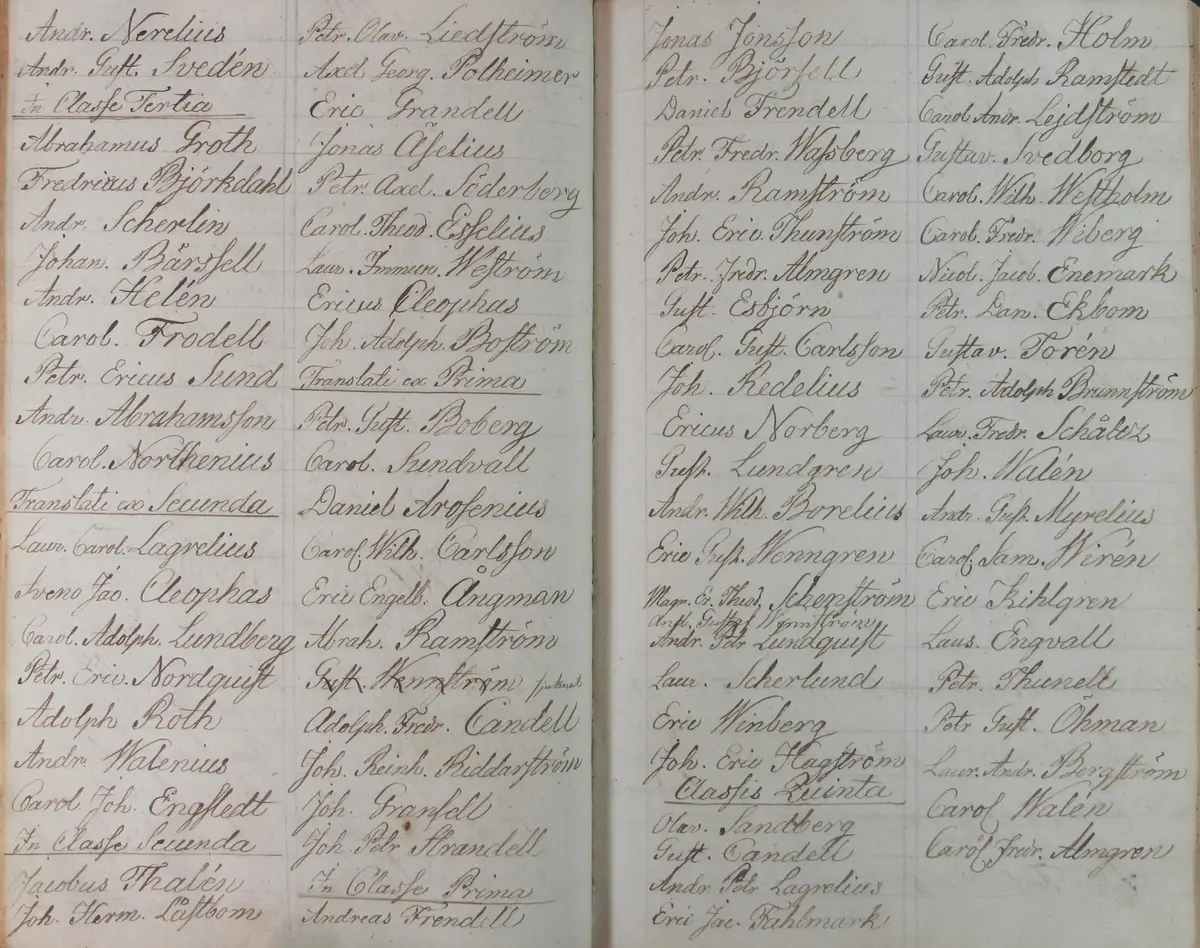 Andr. Nerelius
Andr. Gust. Svedén
In Classe Tertia
Abrahamus Groth
Fredricus Björkdahl
Andr. Scherlin
Johan. Bärssell
Andr. Helén
Carol. Frodell
Petr. Ericus Sund
Andr. Abrahamsson
Carol. Northenius
Translati ex Secunda
Laur. Carol. Lagrelius
Sveno Jac. Cleophas
Carol. Adolph. Lundberg
Petr. Eric. Nordquist
Adolph Roth
Andr. Walenius
Carol. Joh. Engstedt
In Classe Secunda
Jacobus Thalén
Joh. Herm. Låstbom
Petr. Olav. Liedström
Axel Georg. Polheimer
Eric Grandell
Jonas Äselius
Petr. Axel. Söderberg
Carol. Theod. Esselius
Laur. Immun. Weström
Ericus Cleophas
Joh. Adolph. Boström
Translati ex Prima
Petr. Gust. Boberg
Carol. Sundvall
Daniel Arosenius
Carol. Wilh. Carlsson
Eric Engelb. Ångman
Abrah. Ramström
Gust. Wennström
Adolph. Fredr. Candell
Joh. Reinh. Riddarström
Joh. Gransell
Joh. Petr Strandell
In Classe Prima
Andreas Frendell
Jonas Jonsson
Petr. Björsell
Daniel Frendell
Petr. Fredr. Wassberg
Andr. Ramström
Joh. Eric. Thunström
Petr. Fredr. Almgren
Gust. Esbjörn
Carol. Gust. Carlsson
Joh. Redelius
Ericus Norberg
Gust. Lundgren
Andr. Wilh. Borelius
Eric Gust. Wenngren
Magn. Er. Theod. Schenström
Gustaf Wennström
Andr. Petr Lundquist
Laur. Scherlund
Eric Winberg
Joh. Eric Hagström
Classis Quinta
Olav. Sandberg
Gust. Candell
Andr. Petr Lagrelius
Eric Jac. Fahlmark
Carol. Fredr. Holm
Gust. Adolph Ramstedt
Carol Andr. Lejdström
Gustav. Svedborg
Carol. Wilh. Westholm
Carol. Fredr. Wiberg
Nicol. Jacob. Enemark
Petr. Dan. Ekbom
Gustav. Torén
Petr. Adolph Brunnström
Laur. Fredr. Schåltz
Joh. Walén
Andr. Gust. Myrelius
Carol. Sam. Wirén
Eric Kihlgren
Laur. Engvall
Petr. Thunell
Petr Gust. Öhman
Laur. Andr. Bergström
Carol Walén
Carol Fredr. Almgren